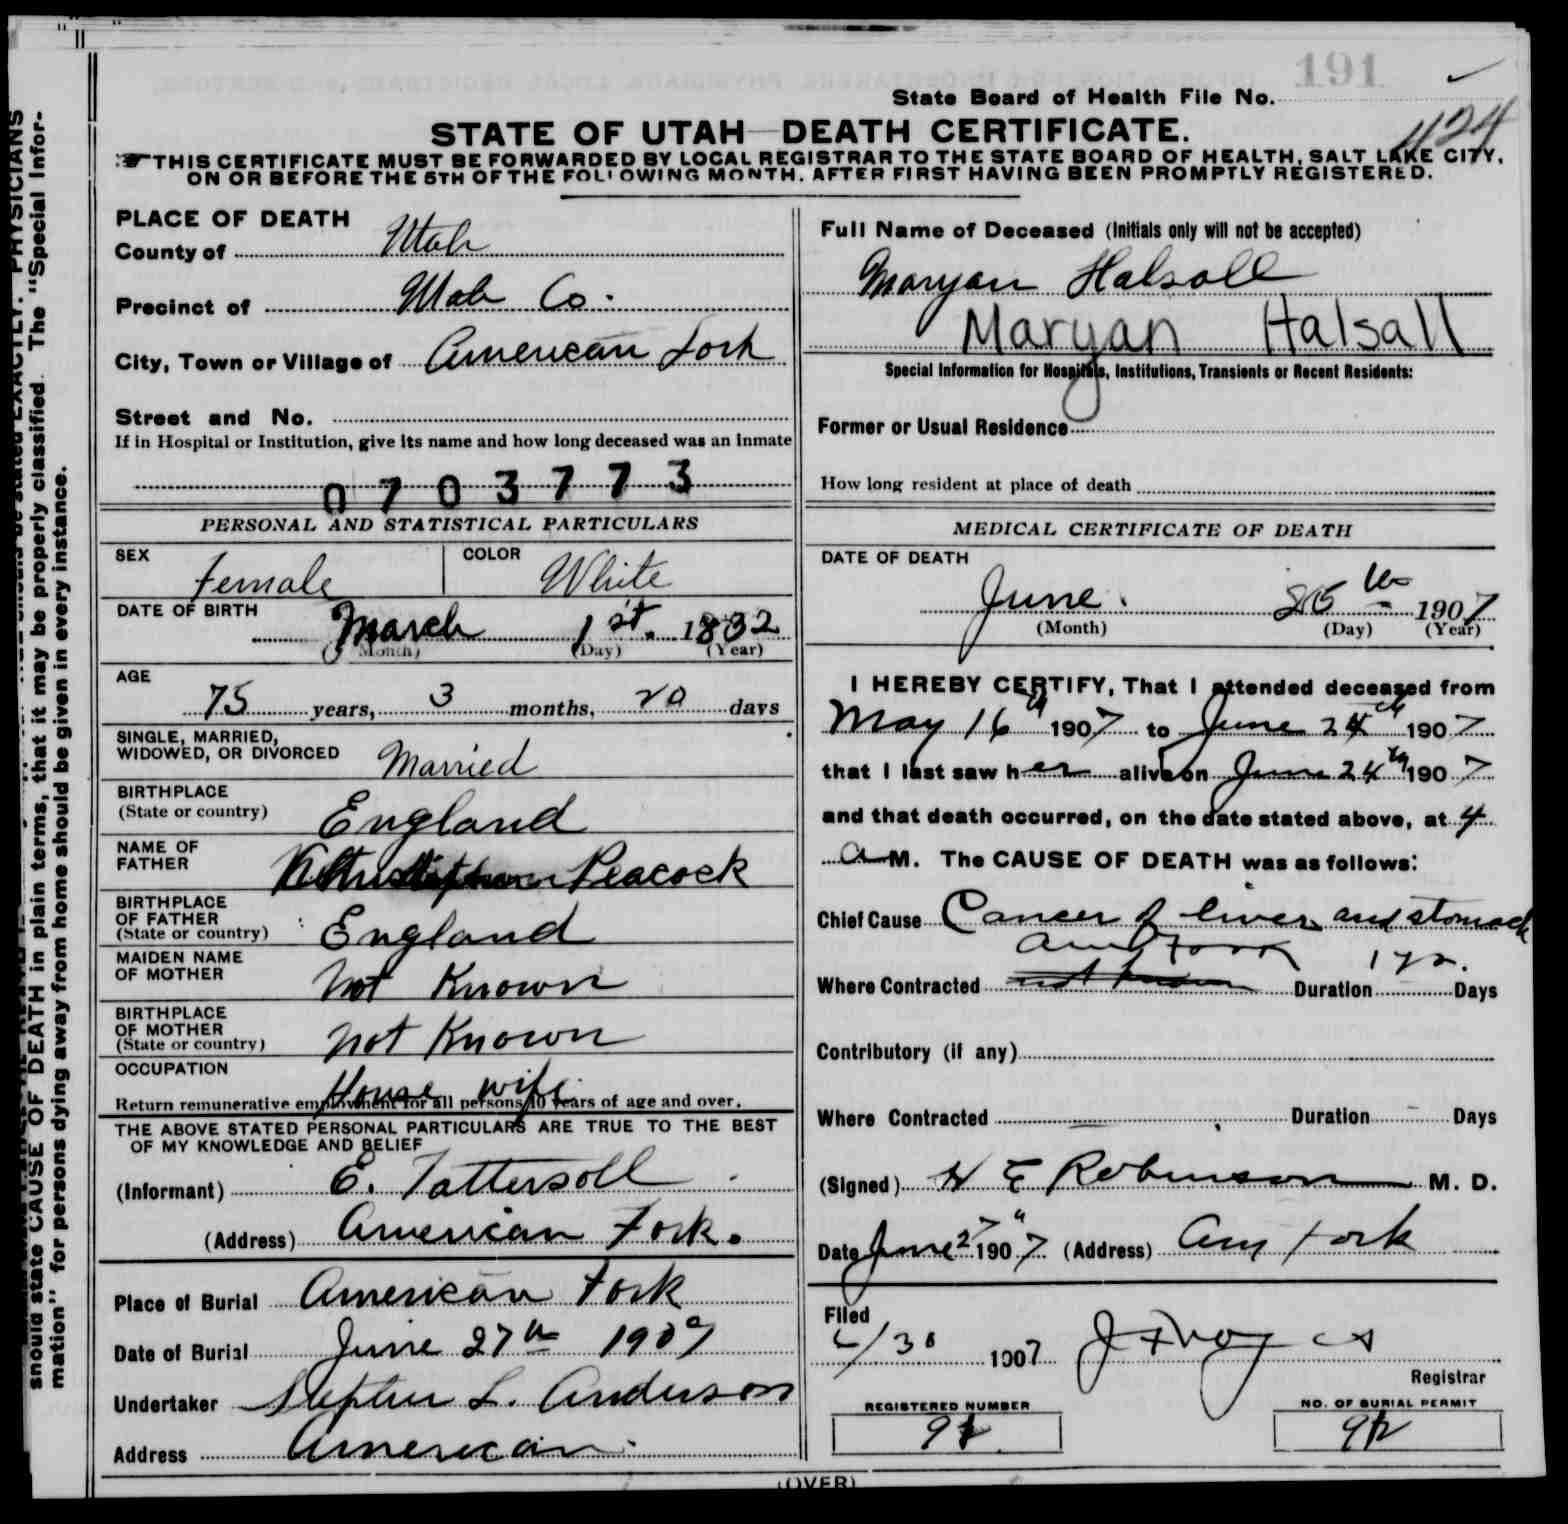 191
State Board of Health File No.
424
STATE OF UTAH—DEATH CERTIFICATE.
THIS CERTIFICATE MUST BE FORWARDED BY LOCAL REGISTRAR TO THE STATE BOARD OF HEALTH, SALT LAKE CITY,
ON OR BEFORE THE 5TH OF THE FOLLOWING MONTH, AFTER FIRST HAVING BEEN PROMPTLY REGISTERED.
should state CAUSE OF DEATH in plain terms, that it may be properly classified. The "Special Infor-
mation" for persons dying away from home should be given in every instance.
PLACE OF DEATH
County of Utah
Precinct of Utah Co.
City, Town or Village of American Fork
Street and No.
If in Hospital or Institution, give its name and how long deceased was an inmate
0703773
PERSONAL AND STATISTICAL PARTICULARS
SEX Female COLOR White
DATE OF BIRTH March 1st. 1832
(Month) (Day) (Year)
AGE
75 years, 3 months, 20 days
SINGLE, MARRIED,
WIDOWED, OR DIVORCED Married
BIRTHPLACE
(State or country) England
NAME OF
FATHER Peacock
BIRTHPLACE
OF FATHER
(State or country) England
MAIDEN NAME
OF MOTHER Not Known
BIRTHPLACE
OF MOTHER
(State or country) Not Known
OCCUPATION
House wife
Return remunerative employment for all persons 10 years of age and over.
THE ABOVE STATED PERSONAL PARTICULARS ARE TRUE TO THE BEST
OF MY KNOWLEDGE AND BELIEF
(Informant) E. Tattersoll
(Address) American Fork.
Place of Burial American Fork
Date of Burial June 27th 1907
Undertaker Stephen L. Anderson
Address American
Full Name of Deceased (Initials only will not be accepted)
Maryan Halsall
Maryan Halsall
Special Information for Hospitals, Institutions, Transients or Recent Residents:
Former or Usual Residence
How long resident at place of death
MEDICAL CERTIFICATE OF DEATH
DATE OF DEATH
June. 25th 1907
(Month) (Day) (Year)
I HEREBY CERTIFY, That I attended deceased from
May 16th 1907 to June 24th 1907
that I last saw her alive on June 24th 1907
and that death occurred, on the date stated above, at 4
a M. The CAUSE OF DEATH was as follows:
Chief Cause Cancer of liver and stomach
Am Fork 1 yr.
Where Contracted not known Duration Days
Contributory (if any)
Where Contracted Duration Days
(Signed) H E Robinson M. D.
Date June 27" 1907 (Address) Am Fork
Filed
6/30 1907
Registrar
REGISTERED NUMBER
NO. OF BURIAL PERMIT
92
(OVER)